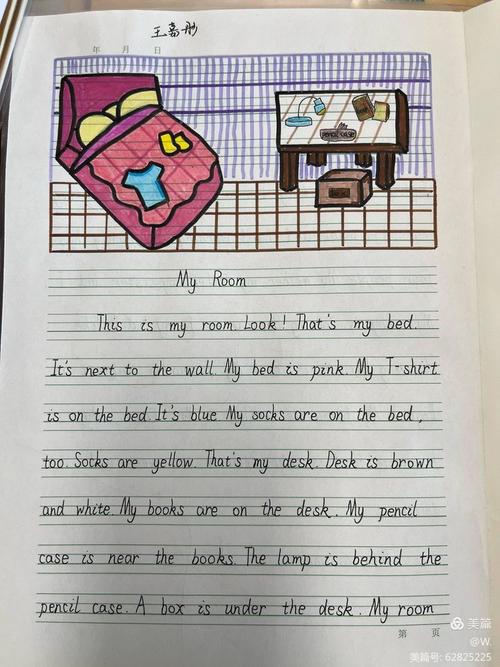 王嘉彤
年 月 日
My PENCIL CASE
My Room
This is my room. Look! That's my bed.
It's next to the wall. My bed is pink. My T-shirt
is on the bed. It's blue. My socks are on the bed,
too. Socks are yellow. That's my desk. Desk is brown
and white. My books are on the desk. My pencil
case is near the books. The lamp is behind the
pencil case. A box is under the desk. My room
第 页
美篇
@W.
美篇号: 62825225